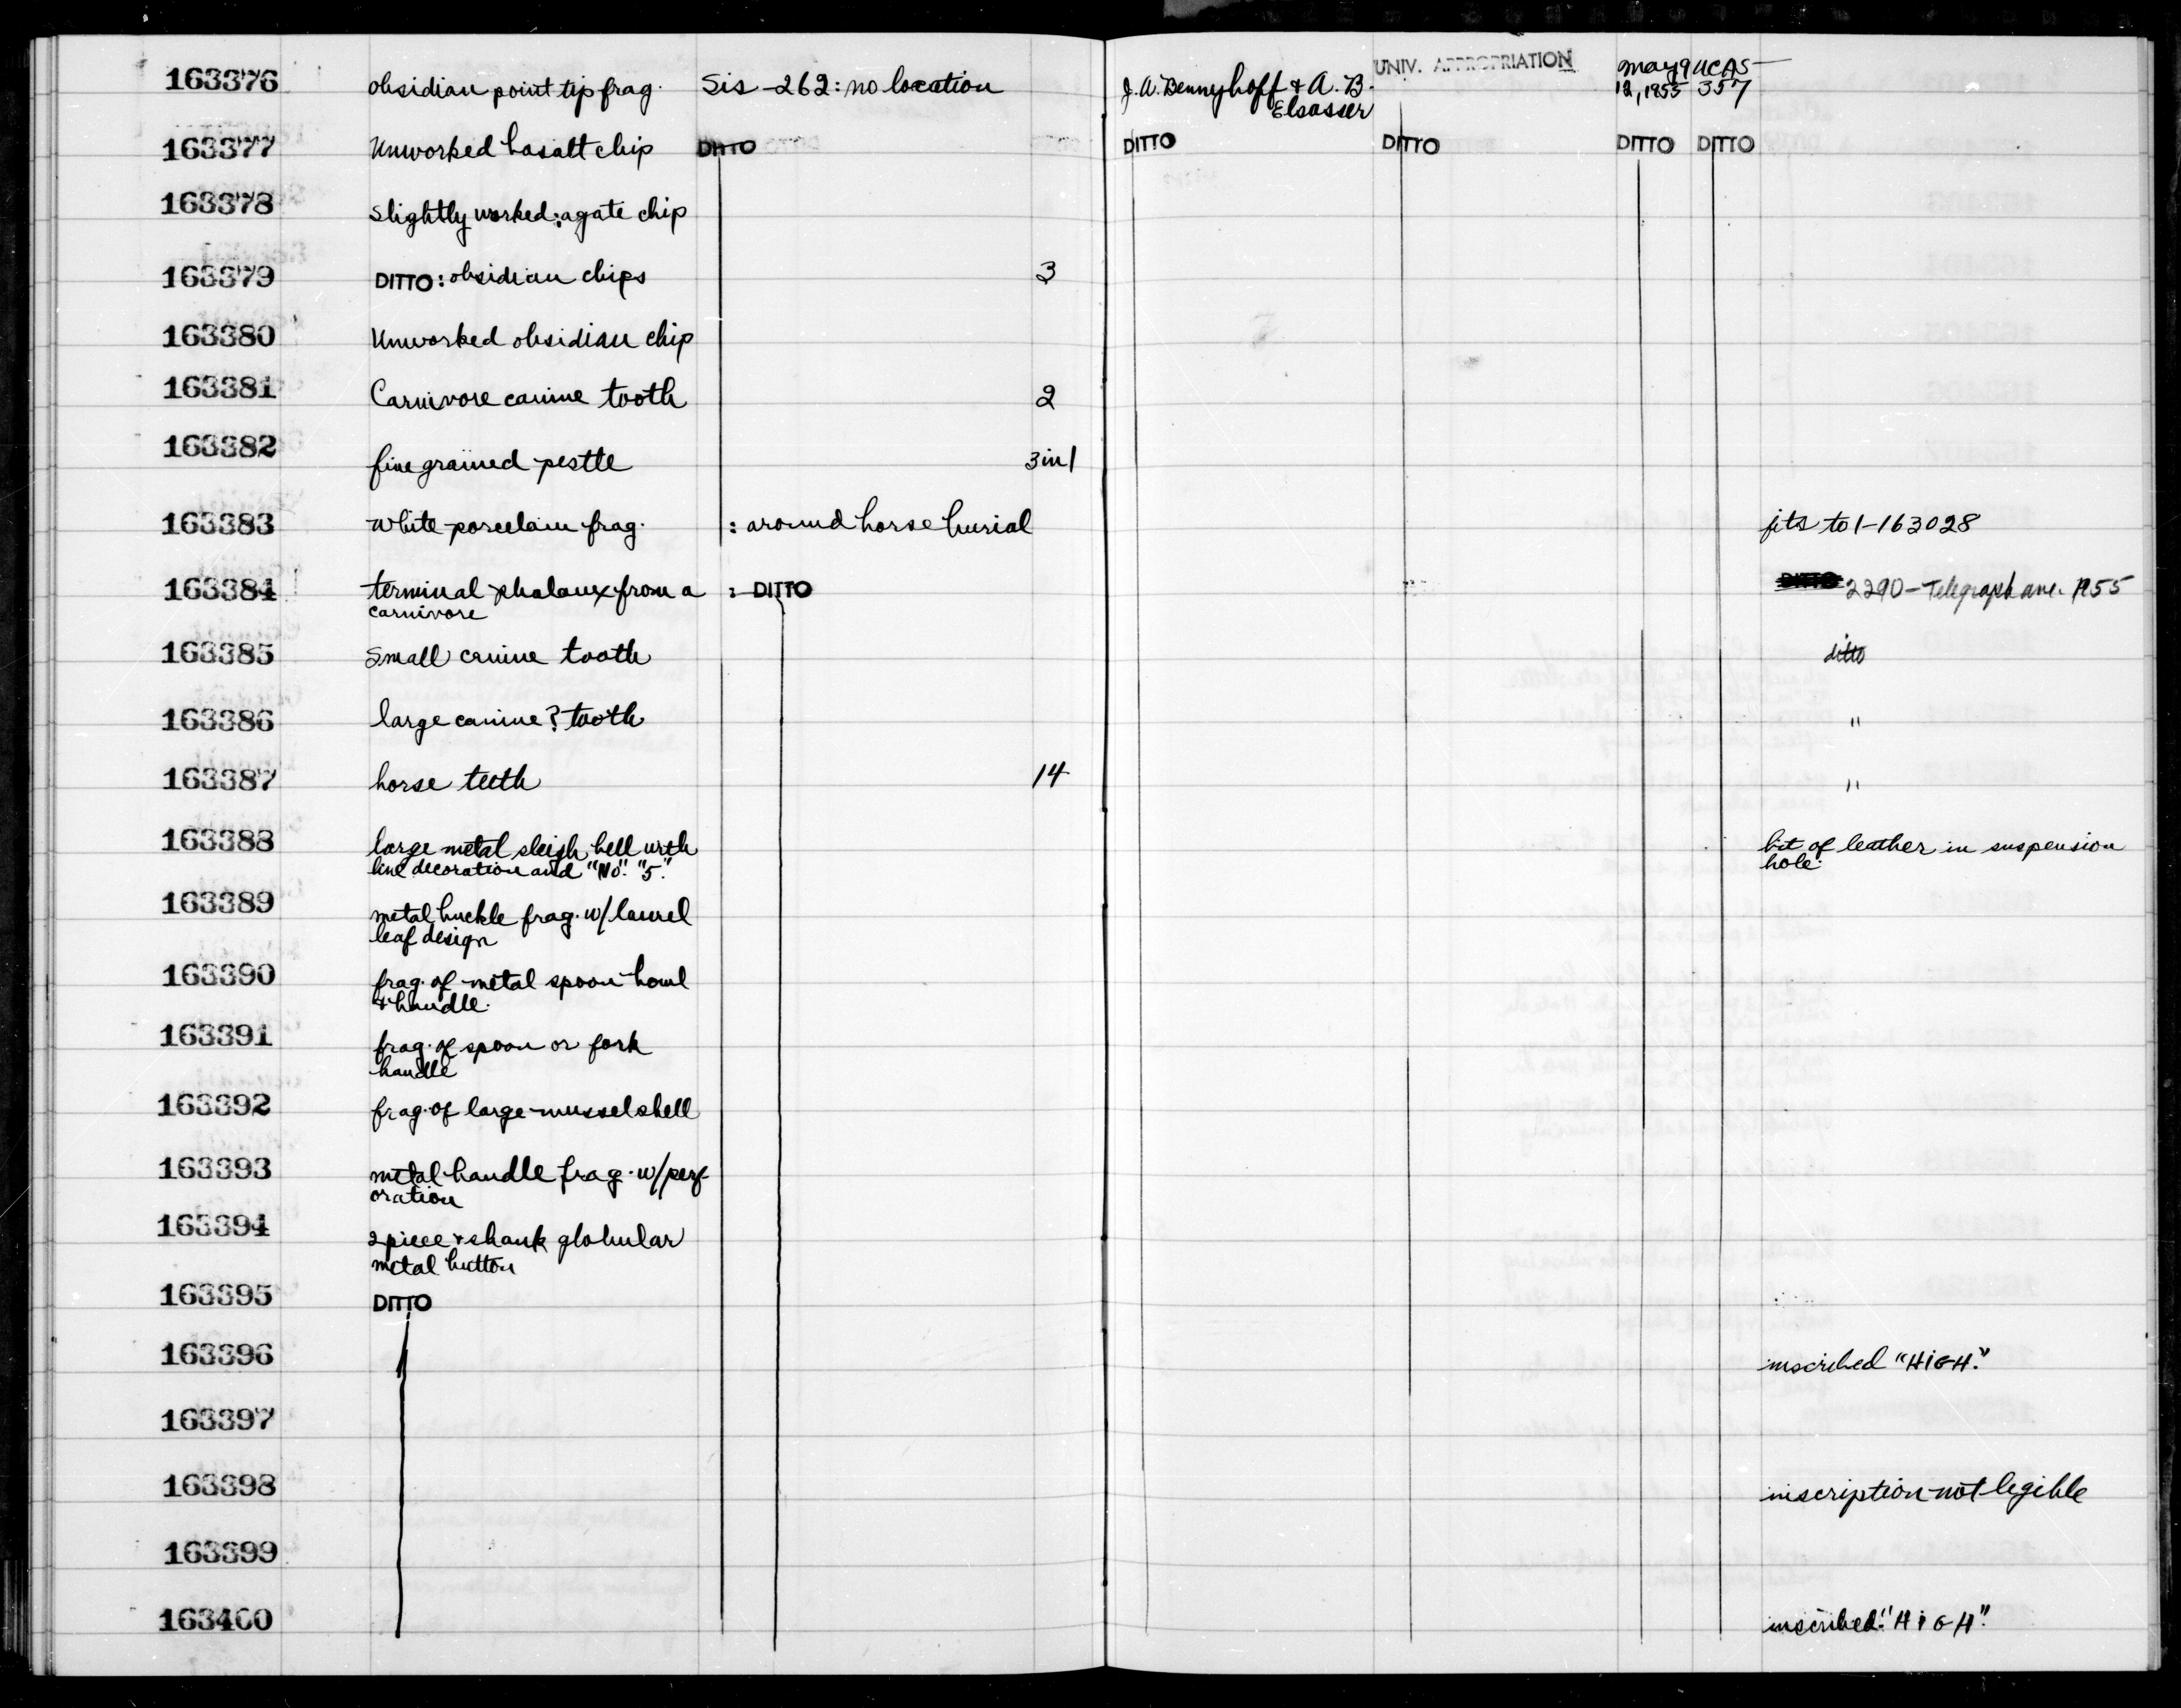 163376 obsidian point tip frag. Sis-262: no location J.A. Bennyhoff & A.B. Elsasser UNIV. APPROPRIATION May 9 UCAS
12, 1955 357
163377 Unworked basalt chip DITTO DITTO DITTO DITTO DITTO
163378 Slightly worked: agate chip
163379 DITTO: obsidian chips 3
163380 Unworked obsidian chip
163381 Carnivore canine tooth 2
163382 fine grained pestle 3 in 1
163383 white porcelain frag. : around horse burial fits to 1-163028
163384 terminal phalanx from a : DITTO 2290-Telegraph ave. 1955
carnivore
163385 Small canine tooth ditto
163386 large canine? tooth "
163387 horse teeth 14 "
163388 large metal sleigh bell with bit of leather in suspension
line decoration and "No". "5". hole.
163389 metal buckle frag. w/ laurel
leaf design
163390 frag. of metal spoon bowl
& handle.
163391 frag. of spoon or fork
handle
163392 frag. of large mussel shell
163393 metal handle frag. w/ perf-
oration
163394 2 piece & shank globular
metal button
163395 DITTO
163396 inscribed "HIGH."
163397
163398 inscription not legible
163399
163400 inscribed: "HIGH".